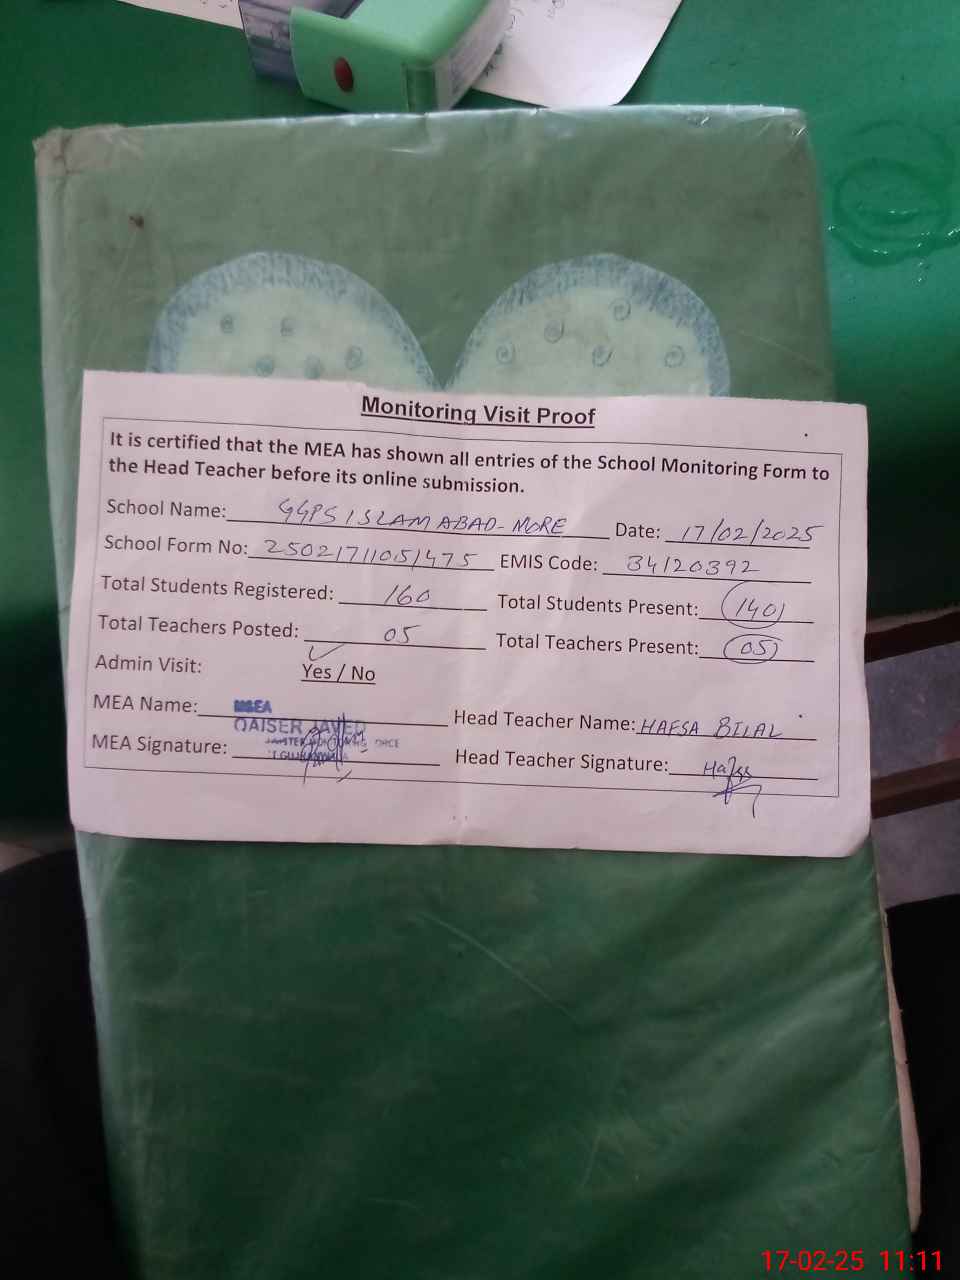 Monitoring Visit Proof
It is certified that the MEA has shown all entries of the School Monitoring Form to
the Head Teacher before its online submission.
School Name: GGPS ISLAMABAD-MORE Date: 17/02/2025
School Form No: 25021711051475 EMIS Code: 34120392
Total Students Registered: 160 Total Students Present: 140
Total Teachers Posted: 05 Total Teachers Present: 05
Admin Visit: Yes / No
MEA Name: MEA Head Teacher Name: HAFSA BILAL
QAISER JAVED
MEA Signature: Head Teacher Signature: Hafsa
17-02-25 11:11